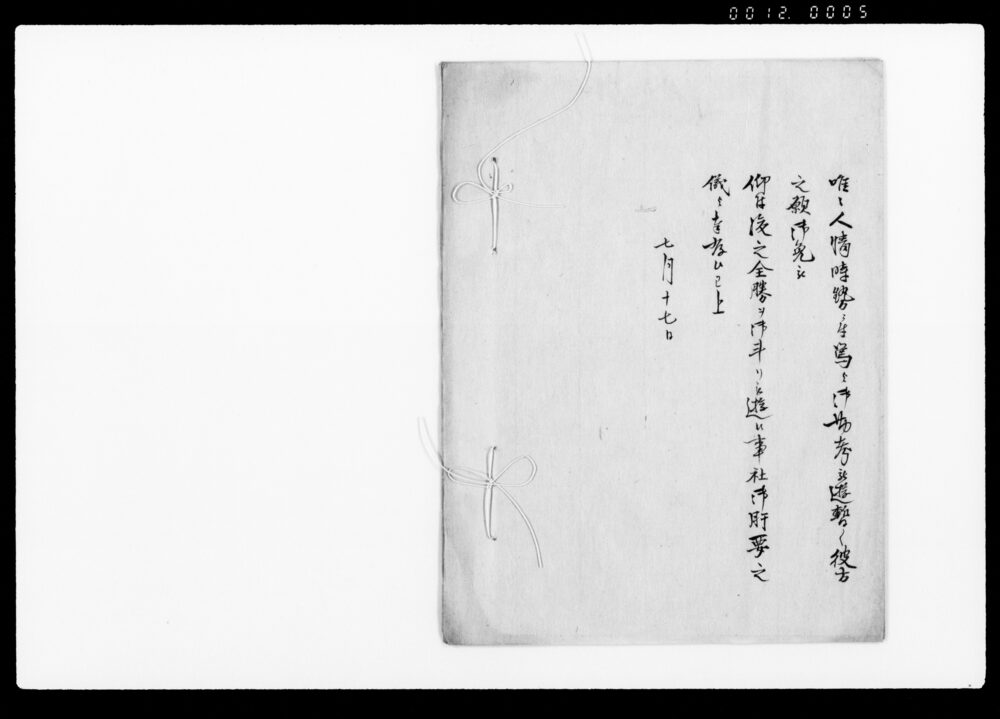 0012. 0005
唯〻人情時勢ニ
御勘考被遊暫く彼方
之願御免被
仰出後之全勝ヲ御斗リ被遊候事社御肝要之
儀と奉存候已上
七月十七日